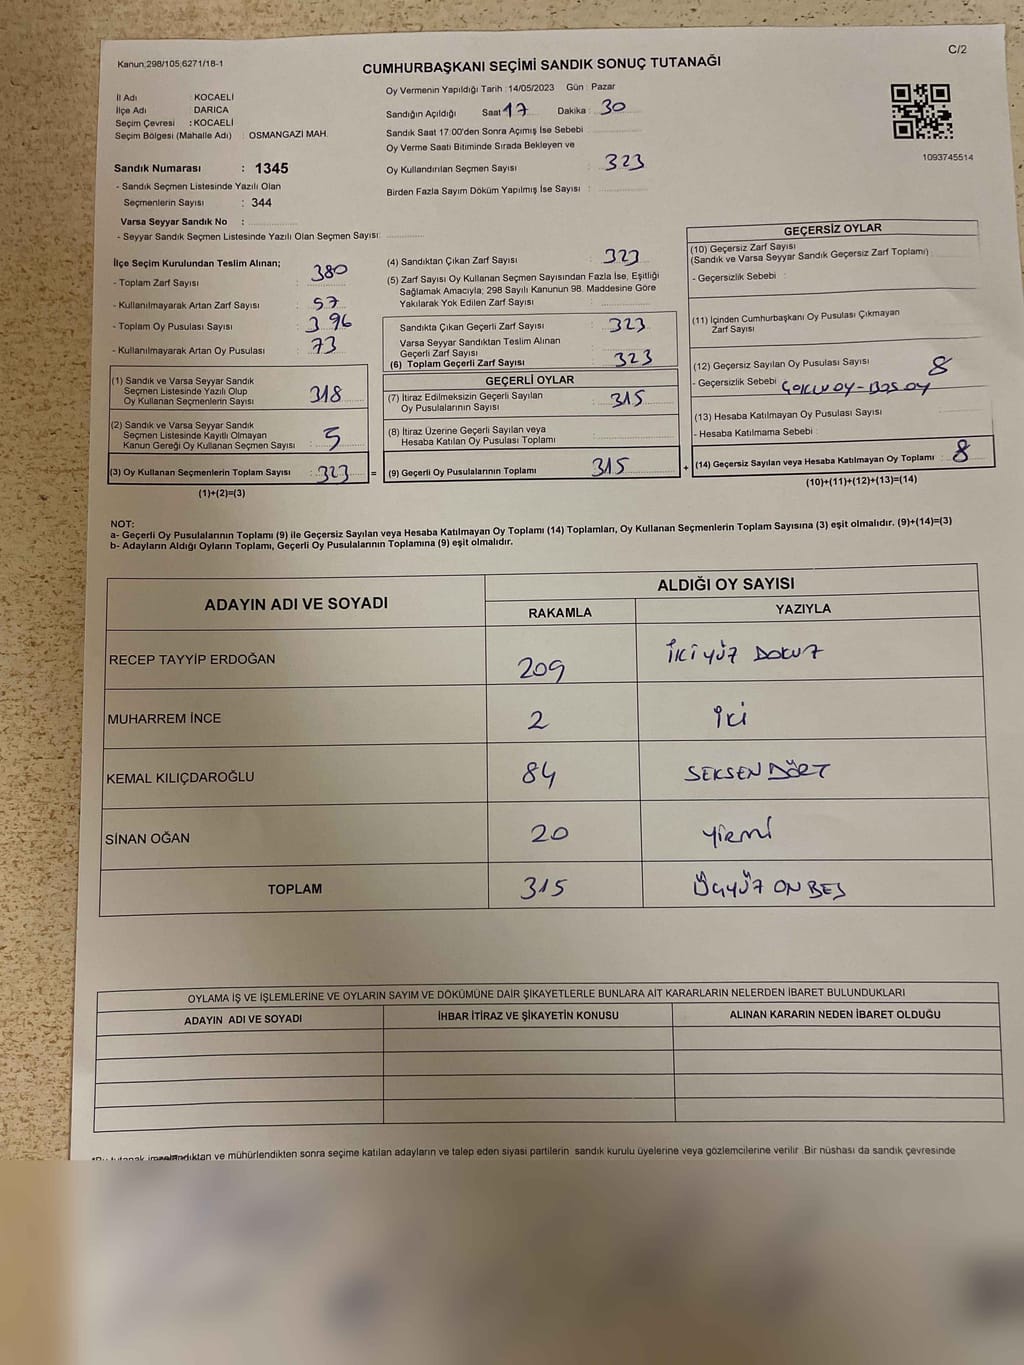 Kanun:298/105,6271/18-1
C/2
CUMHURBAŞKANI SEÇİMİ SANDIK SONUÇ TUTANAĞI
İl Adı : KOCAELİ
İlçe Adı : DARICA
Seçim Çevresi : KOCAELİ
Seçim Bölgesi (Mahalle Adı) : OSMANGAZİ MAH.
Sandık Numarası : 1345
- Sandık Seçmen Listesinde Yazılı Olan
Seçmenlerin Sayısı : 344
Varsa Seyyar Sandık No :
- Seyyar Sandık Seçmen Listesinde Yazılı Olan Seçmen Sayısı:
Oy Vermenin Yapıldığı Tarih : 14/05/2023 Gün : Pazar
Sandığın Açıldığı Saat 17 Dakika : 30
Sandık Saat 17:00'den Sonra Açımış İse Sebebi
Oy Verme Saati Bitiminde Sırada Bekleyen ve
Oy Kullandırılan Seçmen Sayısı : 323
Birden Fazla Sayım Döküm Yapılmış İse Sayısı :
1093745514
İlçe Seçim Kurulundan Teslim Alınan;
- Toplam Zarf Sayısı : 380
- Kullanılmayarak Artan Zarf Sayısı : 57
- Toplam Oy Pusulası Sayısı : 396
- Kullanılmayarak Artan Oy Pusulası : 73
(1) Sandık ve Varsa Seyyar Sandık
Seçmen Listesinde Yazılı Olup
Oy Kullanan Seçmenlerin Sayısı : 318
(2) Sandık ve Varsa Seyyar Sandık
Seçmen Listesinde Kayıtlı Olmayan
Kanun Gereği Oy Kullanan Seçmen Sayısı : 5
(3) Oy Kullanan Seçmenlerin Toplam Sayısı : 323 =
(1)+(2)=(3)
(4) Sandıktan Çıkan Zarf Sayısı : 323
(5) Zarf Sayısı Oy Kullanan Seçmen Sayısından Fazla İse, Eşitliği
Sağlamak Amacıyla; 298 Sayılı Kanunun 98. Maddesine Göre
Yakılarak Yok Edilen Zarf Sayısı :
Sandıkta Çıkan Geçerli Zarf Sayısı : 323
Varsa Seyyar Sandıktan Teslim Alınan
Geçerli Zarf Sayısı :
(6) Toplam Geçerli Zarf Sayısı : 323
GEÇERLİ OYLAR
(7) İtiraz Edilmeksizin Geçerli Sayılan
Oy Pusulalarının Sayısı : 315
(8) İtiraz Üzerine Geçerli Sayılan veya
Hesaba Katılan Oy Pusulası Toplamı :
(9) Geçerli Oy Pusulalarının Toplamı : 315 +
GEÇERSİZ OYLAR
(10) Geçersiz Zarf Sayısı
(Sandık ve Varsa Seyyar Sandık Geçersiz Zarf Toplamı) :
- Geçersizlik Sebebi :
(11) İçinden Cumhurbaşkanı Oy Pusulası Çıkmayan
Zarf Sayısı :
(12) Geçersiz Sayılan Oy Pusulası Sayısı : 8
- Geçersizlik Sebebi : ÇOKLU OY - BOŞ OY
(13) Hesaba Katılmayan Oy Pusulası Sayısı :
- Hesaba Katılmama Sebebi :
(14) Geçersiz Sayılan veya Hesaba Katılmayan Oy Toplamı : 8
(10)+(11)+(12)+(13)=(14)
NOT:
a- Geçerli Oy Pusulalarının Toplamı (9) ile Geçersiz Sayılan veya Hesaba Katılmayan Oy Toplamı (14) Toplamları, Oy Kullanan Seçmenlerin Toplam Sayısına (3) eşit olmalıdır. (9)+(14)=(3)
b- Adayların Aldığı Oyların Toplamı, Geçerli Oy Pusulalarının Toplamına (9) eşit olmalıdır.
ADAYIN ADI VE SOYADI
ALDIĞI OY SAYISI
RAKAMLA YAZIYLA
RECEP TAYYİP ERDOĞAN 209 İKİ YÜZ DOKUZ
MUHARREM İNCE 2 İki
KEMAL KILIÇDAROĞLU 84 SEKSEN DÖRT
SİNAN OĞAN 20 yirmi
TOPLAM 315 ÜÇYÜZ ON BEŞ
OYLAMA İŞ VE İŞLEMLERİNE VE OYLARIN SAYIM VE DÖKÜMÜNE DAİR ŞİKAYETLERLE BUNLARA AİT KARARLARIN NELERDEN İBARET BULUNDUKLARI
ADAYIN ADI VE SOYADI İHBAR İTİRAZ VE ŞİKAYETİN KONUSU ALINAN KARARIN NEDEN İBARET OLDUĞU
*Bu tutanak imzalandıktan ve mühürlendikten sonra seçime katılan adayların ve talep eden siyasi partilerin sandık kurulu üyelerine veya gözlemcilerine verilir .Bir nüshası da sandık çevresinde